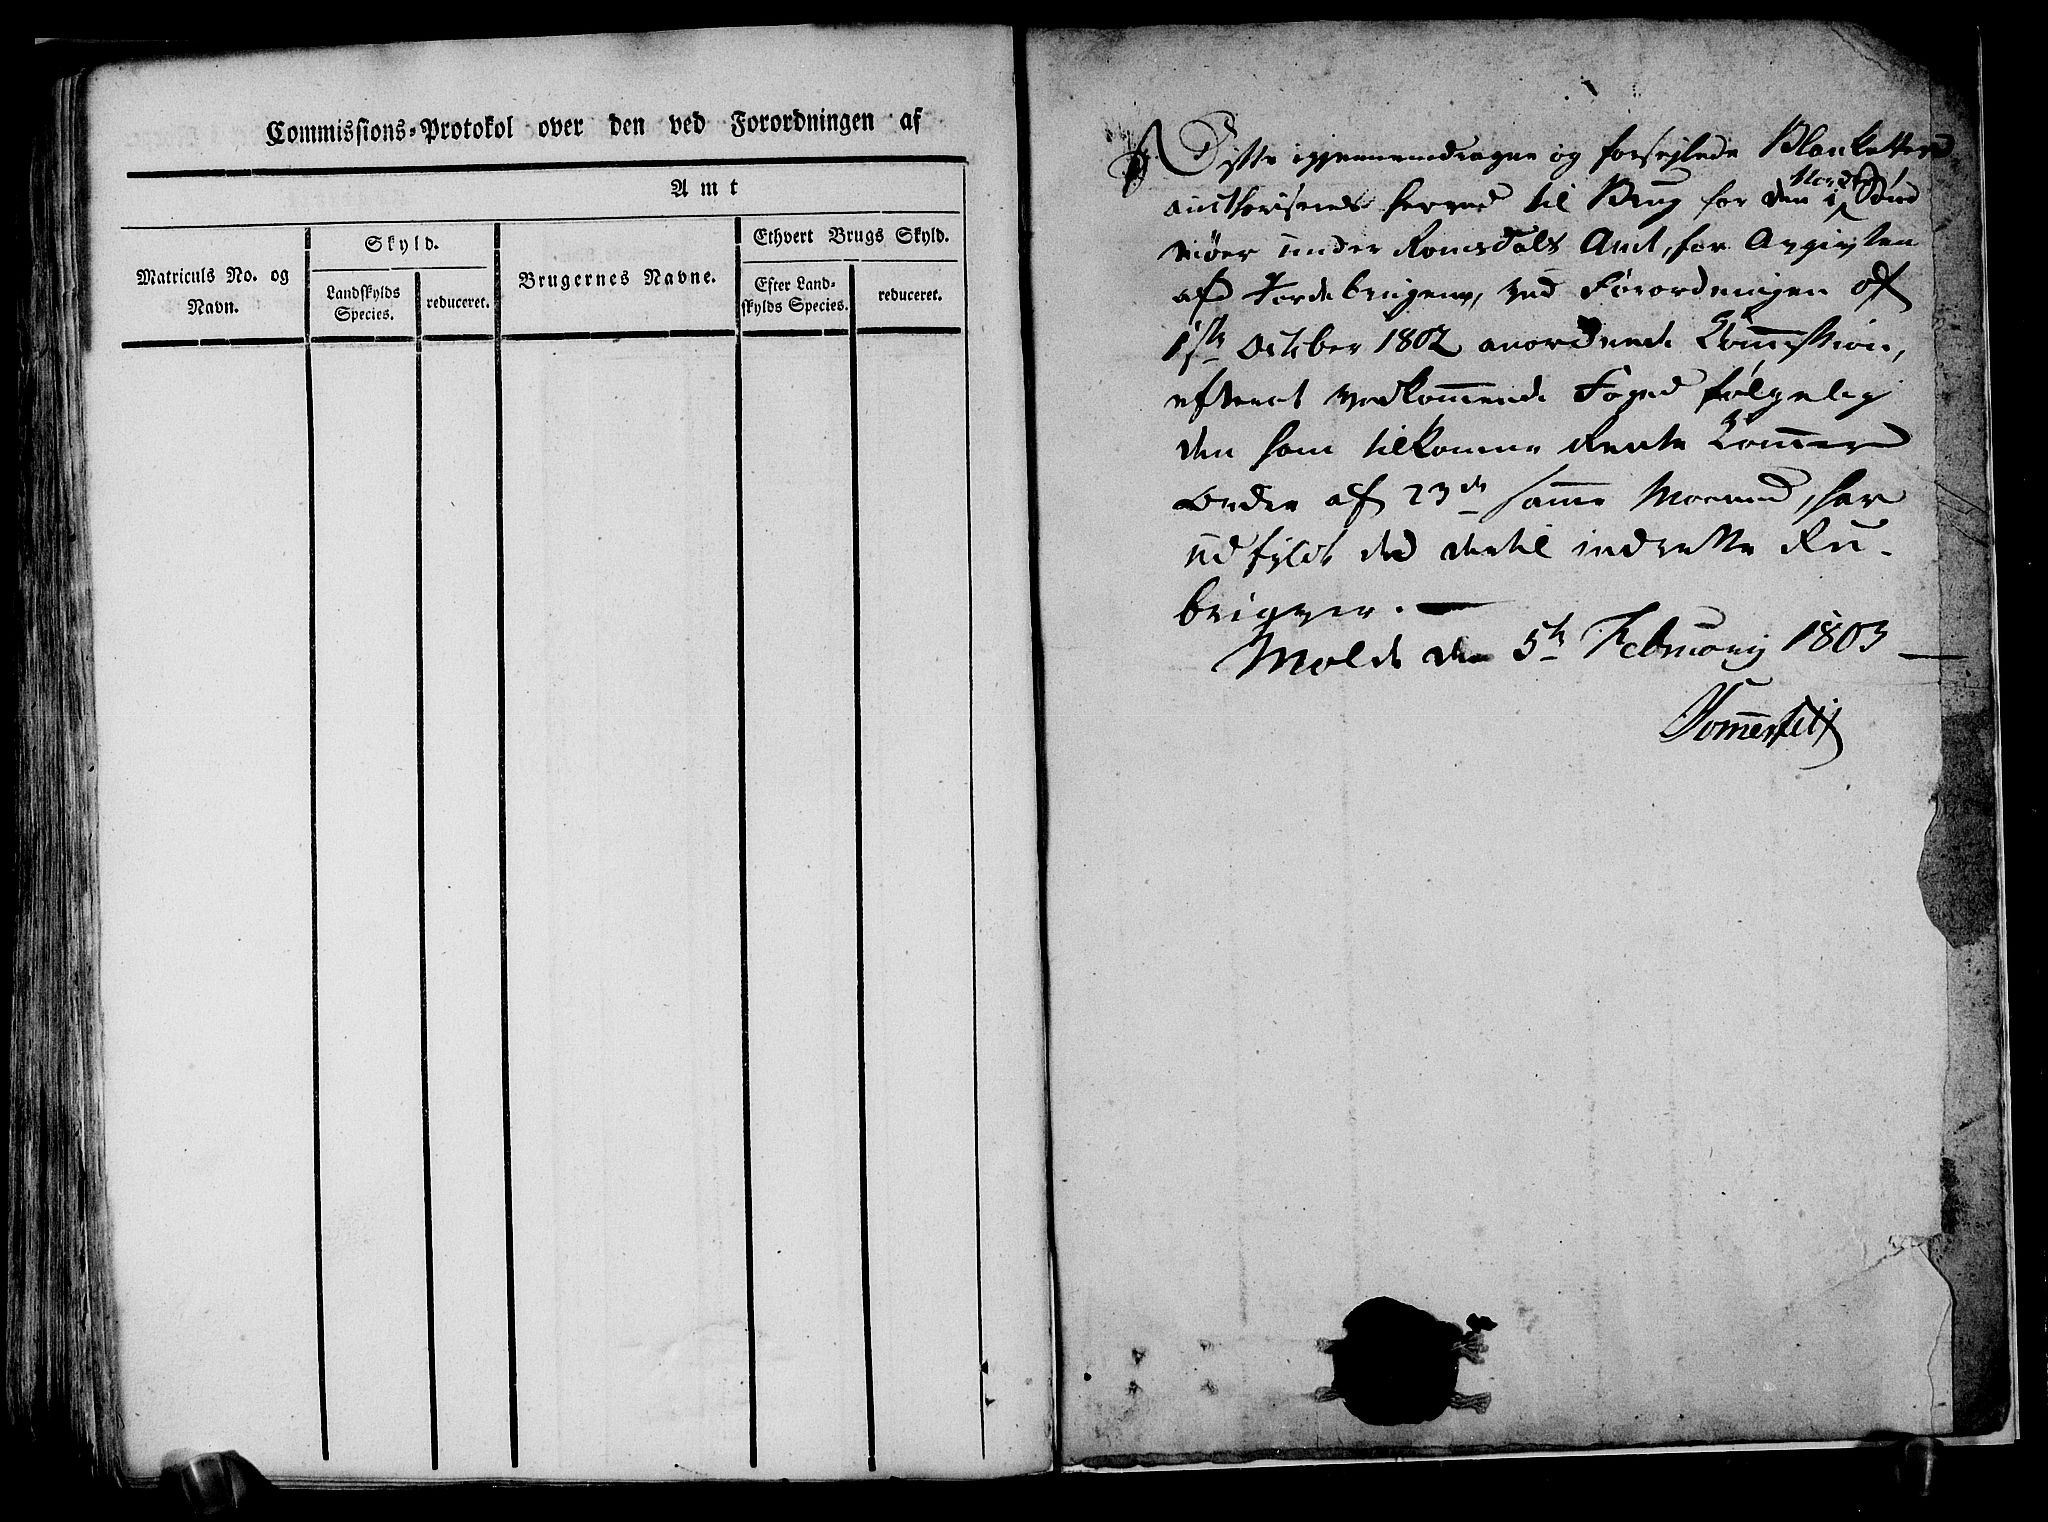 Commissions-Protokol over den ved Forordningen af
Amt
Matriculs No. og
Navn.
Skyld.
Landskylds
Species.
reduceret.
Brugernes Navne.
Ethvert Brugs Skyld.
Efter Land-
skylds Species.
reduceret.
Disse igjennemdragne og forseglede Blanketter
aucthoriseres herved til Brug for den i Nord
møer under Romsdals Amt, for Avgivten
af Jordebrugene, ved Forordningen af
1ste October 1802 anordnede Commission,
efterat vedkommende Foged følgelig
den ham tilkomne Rente Cammer
Ordre af 23de samme Maaned, har
udfyldt de dertil indrette Ru-
briqver. —
Molde den 5te February 1803
Sommerfeldt